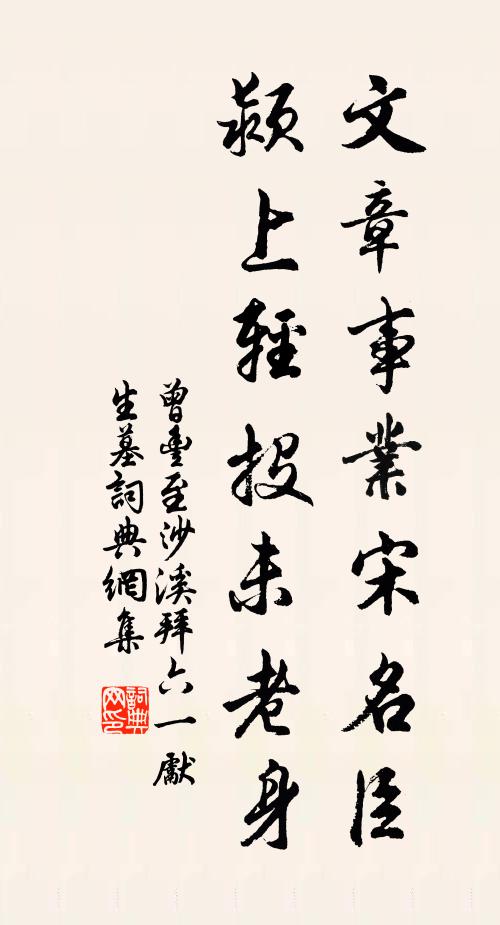 文章事業宋名臣
潁上輕投未老身
曾豐至沙溪拜六一獻
生墓詞典網集
詞典网印